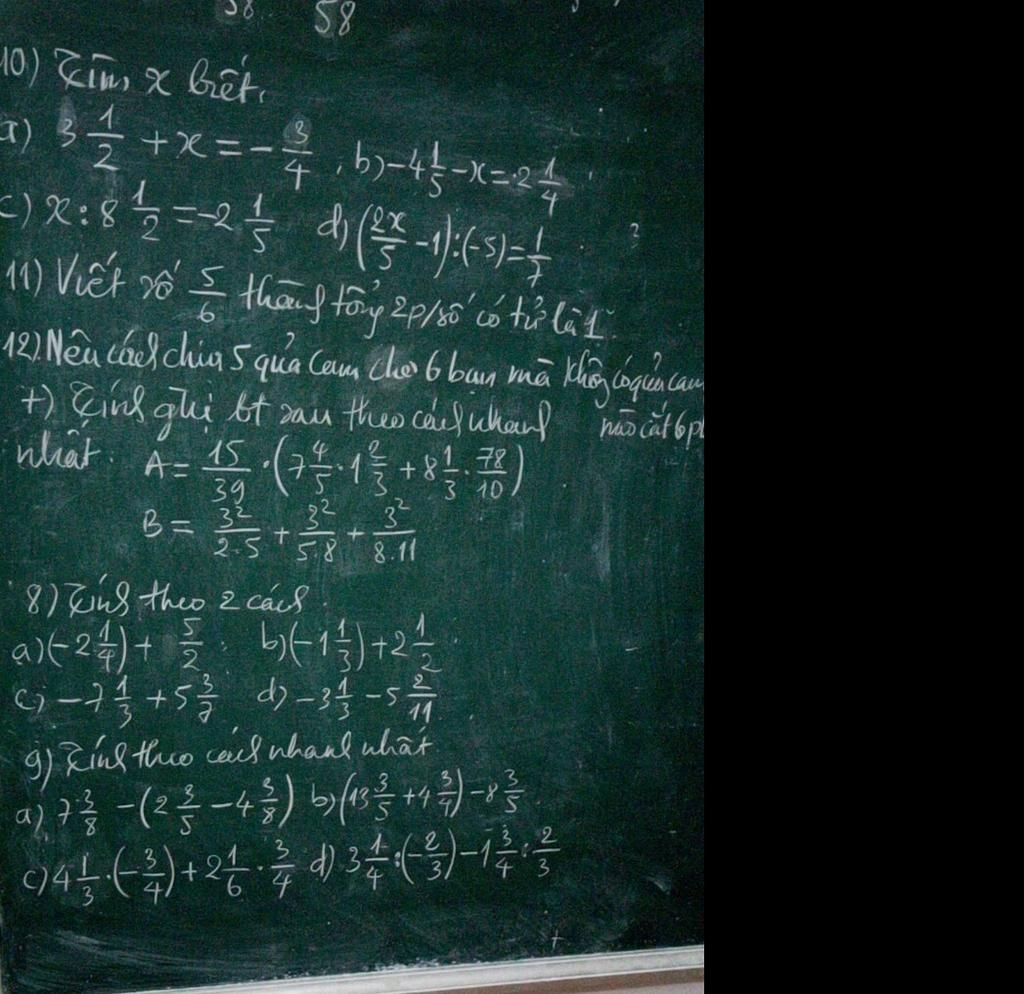 58 58
10) Tìm x biết.
a) 3 1/2 + x = - 3/4 , b) - 4 1/5 - x = -2 1/4
c) x : 8 1/2 = -2 1/5 d) (2x/5 - 1) : (-5) = 1/7
11) Viết số 5/6 thành tổng 2 p/số có tử là 1.
12) Nêu cách chia 5 quả cam cho 6 bạn mà không có quả cam
nào cắt 6 p
7) Tính giá trị bt sau theo cách nhanh
nhất. A = 15/39 . (7 4/5 . 1 2/3 + 8 1/3 . 78/10)
B = 3²/2.5 + 3²/5.8 + 3²/8.11
8) Tính theo 2 cách.
a) (-2 1/4) + 5/2 . b) (-1 1/3) + 2 1/2
c) - 7 1/3 + 5 3/7 d) - 3 1/3 - 5 2/11
9) Tính theo cách nhanh nhất
a) 7 3/8 - (2 3/5 - 4 3/8) b) (13 3/5 + 4 3/4) - 8 3/5
c) 4 1/3 . (- 3/4) + 2 1/6 . 3/4 d) 3 1/4 : (- 2/3) - 1 3/4 : 2/3